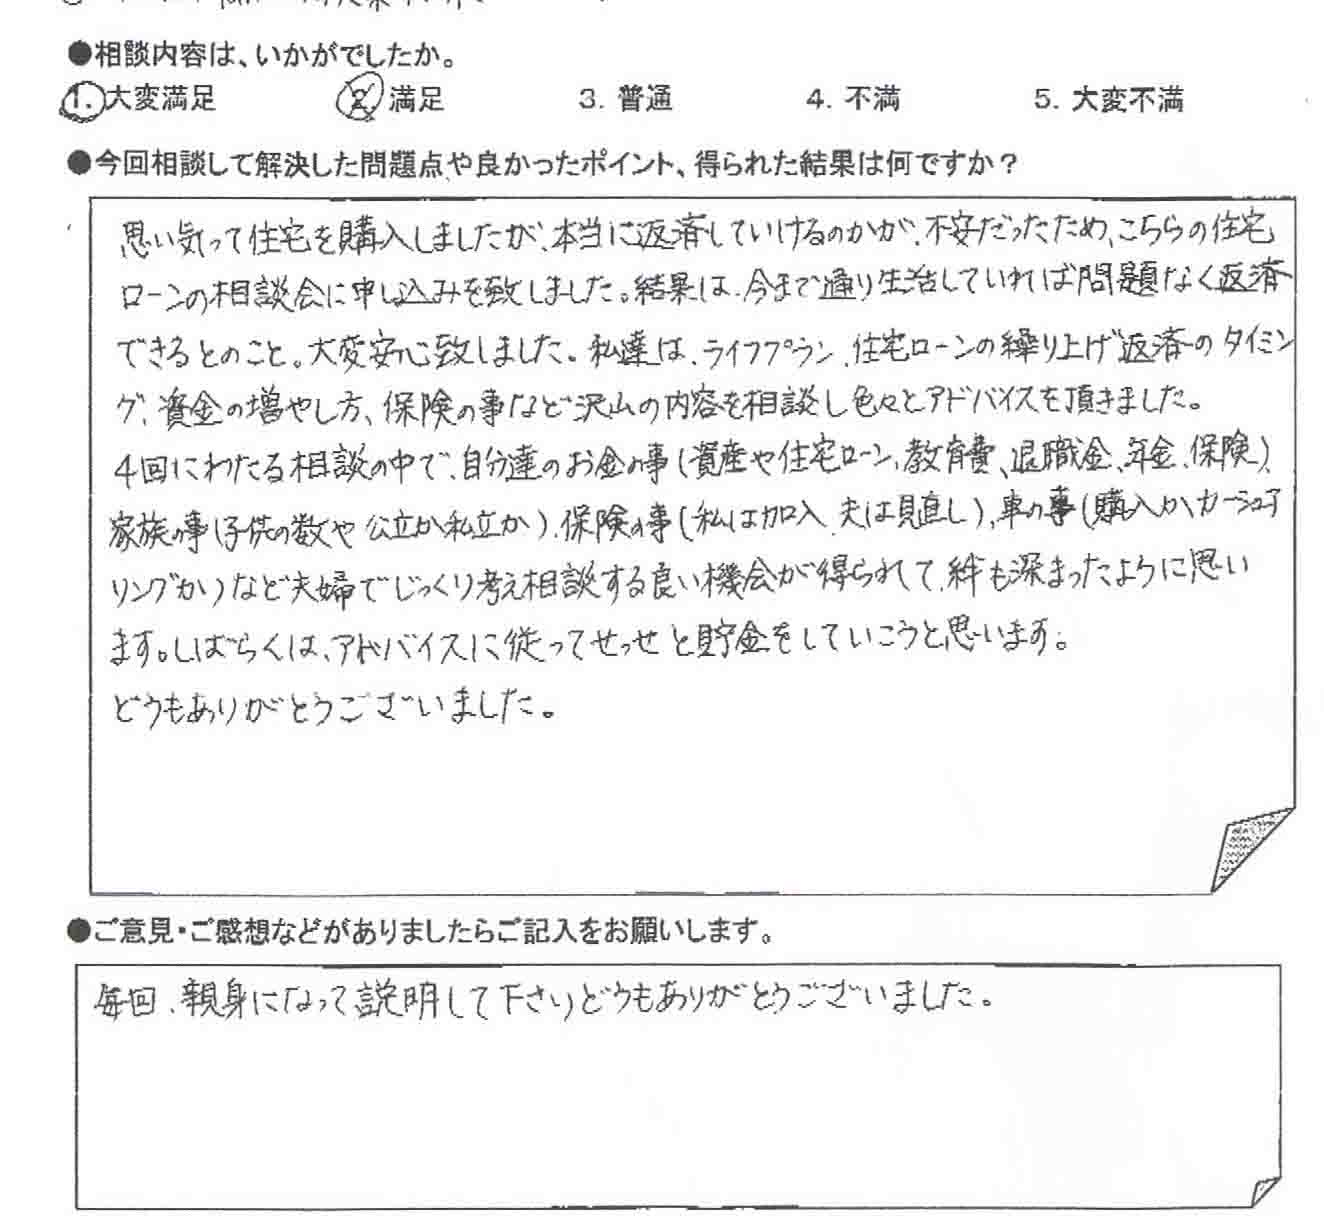 ●相談内容は、いかがでしたか。
1. 大変満足 2. 満足 3. 普通 4. 不満 5. 大変不満
●今回相談して解決した問題点や良かったポイント、得られた結果は何ですか？
思い気って住宅を購入しましたが、本当に返済していけるのかが、不安だったため、こちらの住宅
ローンの相談会に申し込みを致しました。結果は、今まで通り生活していれば問題なく返済
できるとのこと。大変安心致しました。私達は、ライフプラン、住宅ローンの繰り上げ返済のタイミン
グ、資金の増やし方、保険の事など沢山の内容を相談し色々とアドバイスを頂きました。
4回にわたる相談の中で、自分達のお金の事(資産や住宅ローン、教育費、退職金、年金、保険)、
家族の事(子供の数や公立か私立か)、保険の事(私は加入、夫は見直し)、車の事(購入か、カーシェア
リングか)など夫婦でじっくり考え相談する良い機会が得られて、絆も深まったように思い
ます。しばらくは、アドバイスに従ってせっせと貯金をしていこうと思います。
どうもありがとうございました。
●ご意見・ご感想などがありましたらご記入をお願いします。
毎回、親身になって説明して下さりどうもありがとうございました。